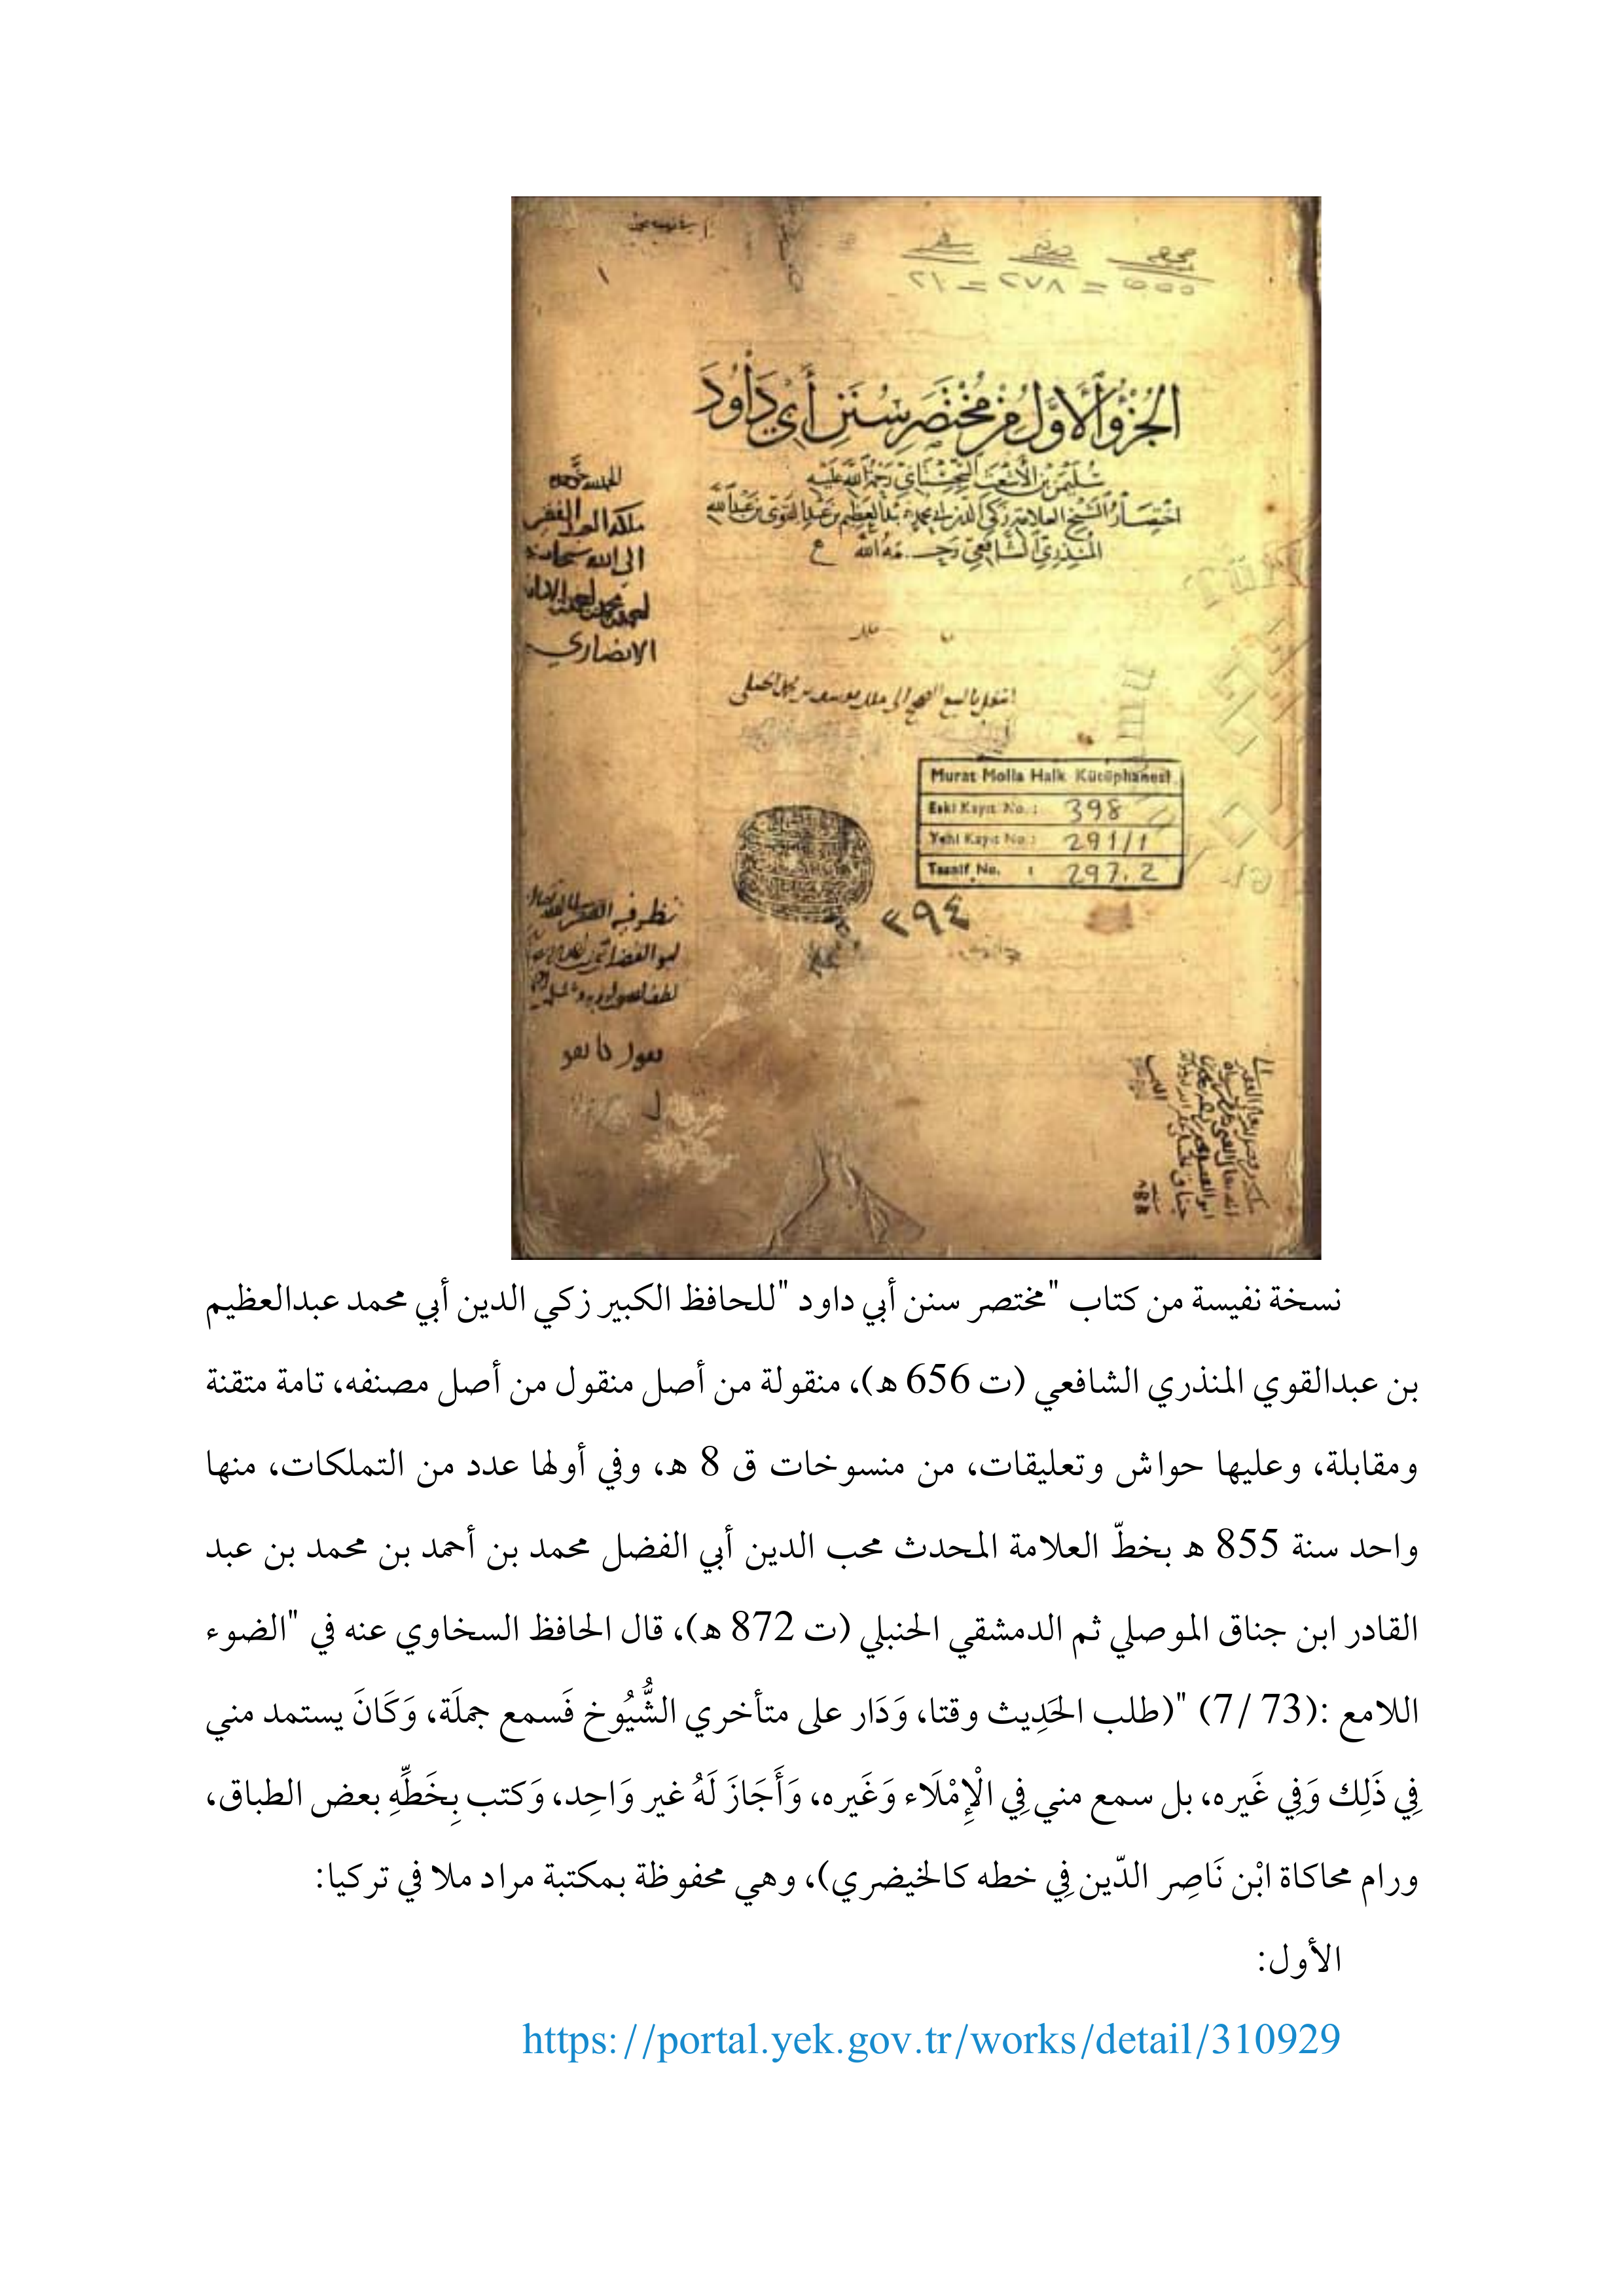 الجُزْءُ الأَوَّلُ مِنْ مُخْتَصَرِ سُنَنِ أَبِي دَاوُدَ
سُلَيْمٰنَ بْنِ الأَشْعَثِ السِّجِسْتَانِيِّ رَحْمَةُ اللَّهِ عَلَيْهِ
اختِصَارُ الشَّيْخِ العلامة زكي الدين أبي محمد عبد العظيم بن عبد القوي بن عبد الله
المُنذِرِيِّ الشَّافِعِيِّ رَحِمَهُ اللَّه
الحمد لله
ملكه العبد الفقير
الى الله سبحانه
الانصاري
انتقل بالبيع الصحيح الى ملك يوسف بن محمد الحنبلي
Murat Molla Halk Kütüphanesi
Eski Kayıt No. : 398
Yeni Kayıt No : 291/1
Tasnif No. : 297.2
٣٩٤
نظر فيه
نسخة نفيسة من كتاب "مختصر سنن أبي داود "للحافظ الكبير زكي الدين أبي محمد عبدالعظيم
بن عبدالقوي المنذري الشافعي (ت 656 ه)، منقولة من أصل منقول من أصل مصنفه، تامة متقنة
ومقابلة، وعليها حواش وتعليقات، من منسوخات ق 8 ه، وفي أولها عدد من التملكات، منها
واحد سنة 855 ه بخطّ العلامة المحدث محب الدين أبي الفضل محمد بن أحمد بن محمد بن عبد
القادر ابن جناق الموصلي ثم الدمشقي الحنبلي (ت 872 ه)، قال الحافظ السخاوي عنه في "الضوء
اللامع :(73 /7) "(طلب الحَدِيث وقتا، وَدَار على متأخري الشُّيُوخ فَسمع جملَة، وَكَانَ يستمد مني
فِي ذَلِك وَفِي غَيره، بل سمع مني فِي الْإِمْلَاء وَغَيره، وَأَجَازَ لَهُ غير وَاحِد، وَكتب بِخَطِّهِ بعض الطباق،
ورام محاكاة ابْن نَاصِر الدّين فِي خطه كالخيضري)، وهي محفوظة بمكتبة مراد ملا في تركيا:
الأول:
https://portal.yek.gov.tr/works/detail/310929